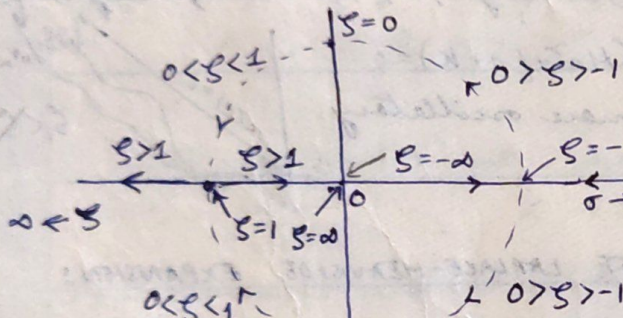 ζ=0
0<ζ<1
0>ζ>-1
ζ>1
ζ>1
ζ=-∞
ζ=-
∞←ζ
ζ=1
ζ=∞
0
σ-
0<ζ<1
0>ζ>-1